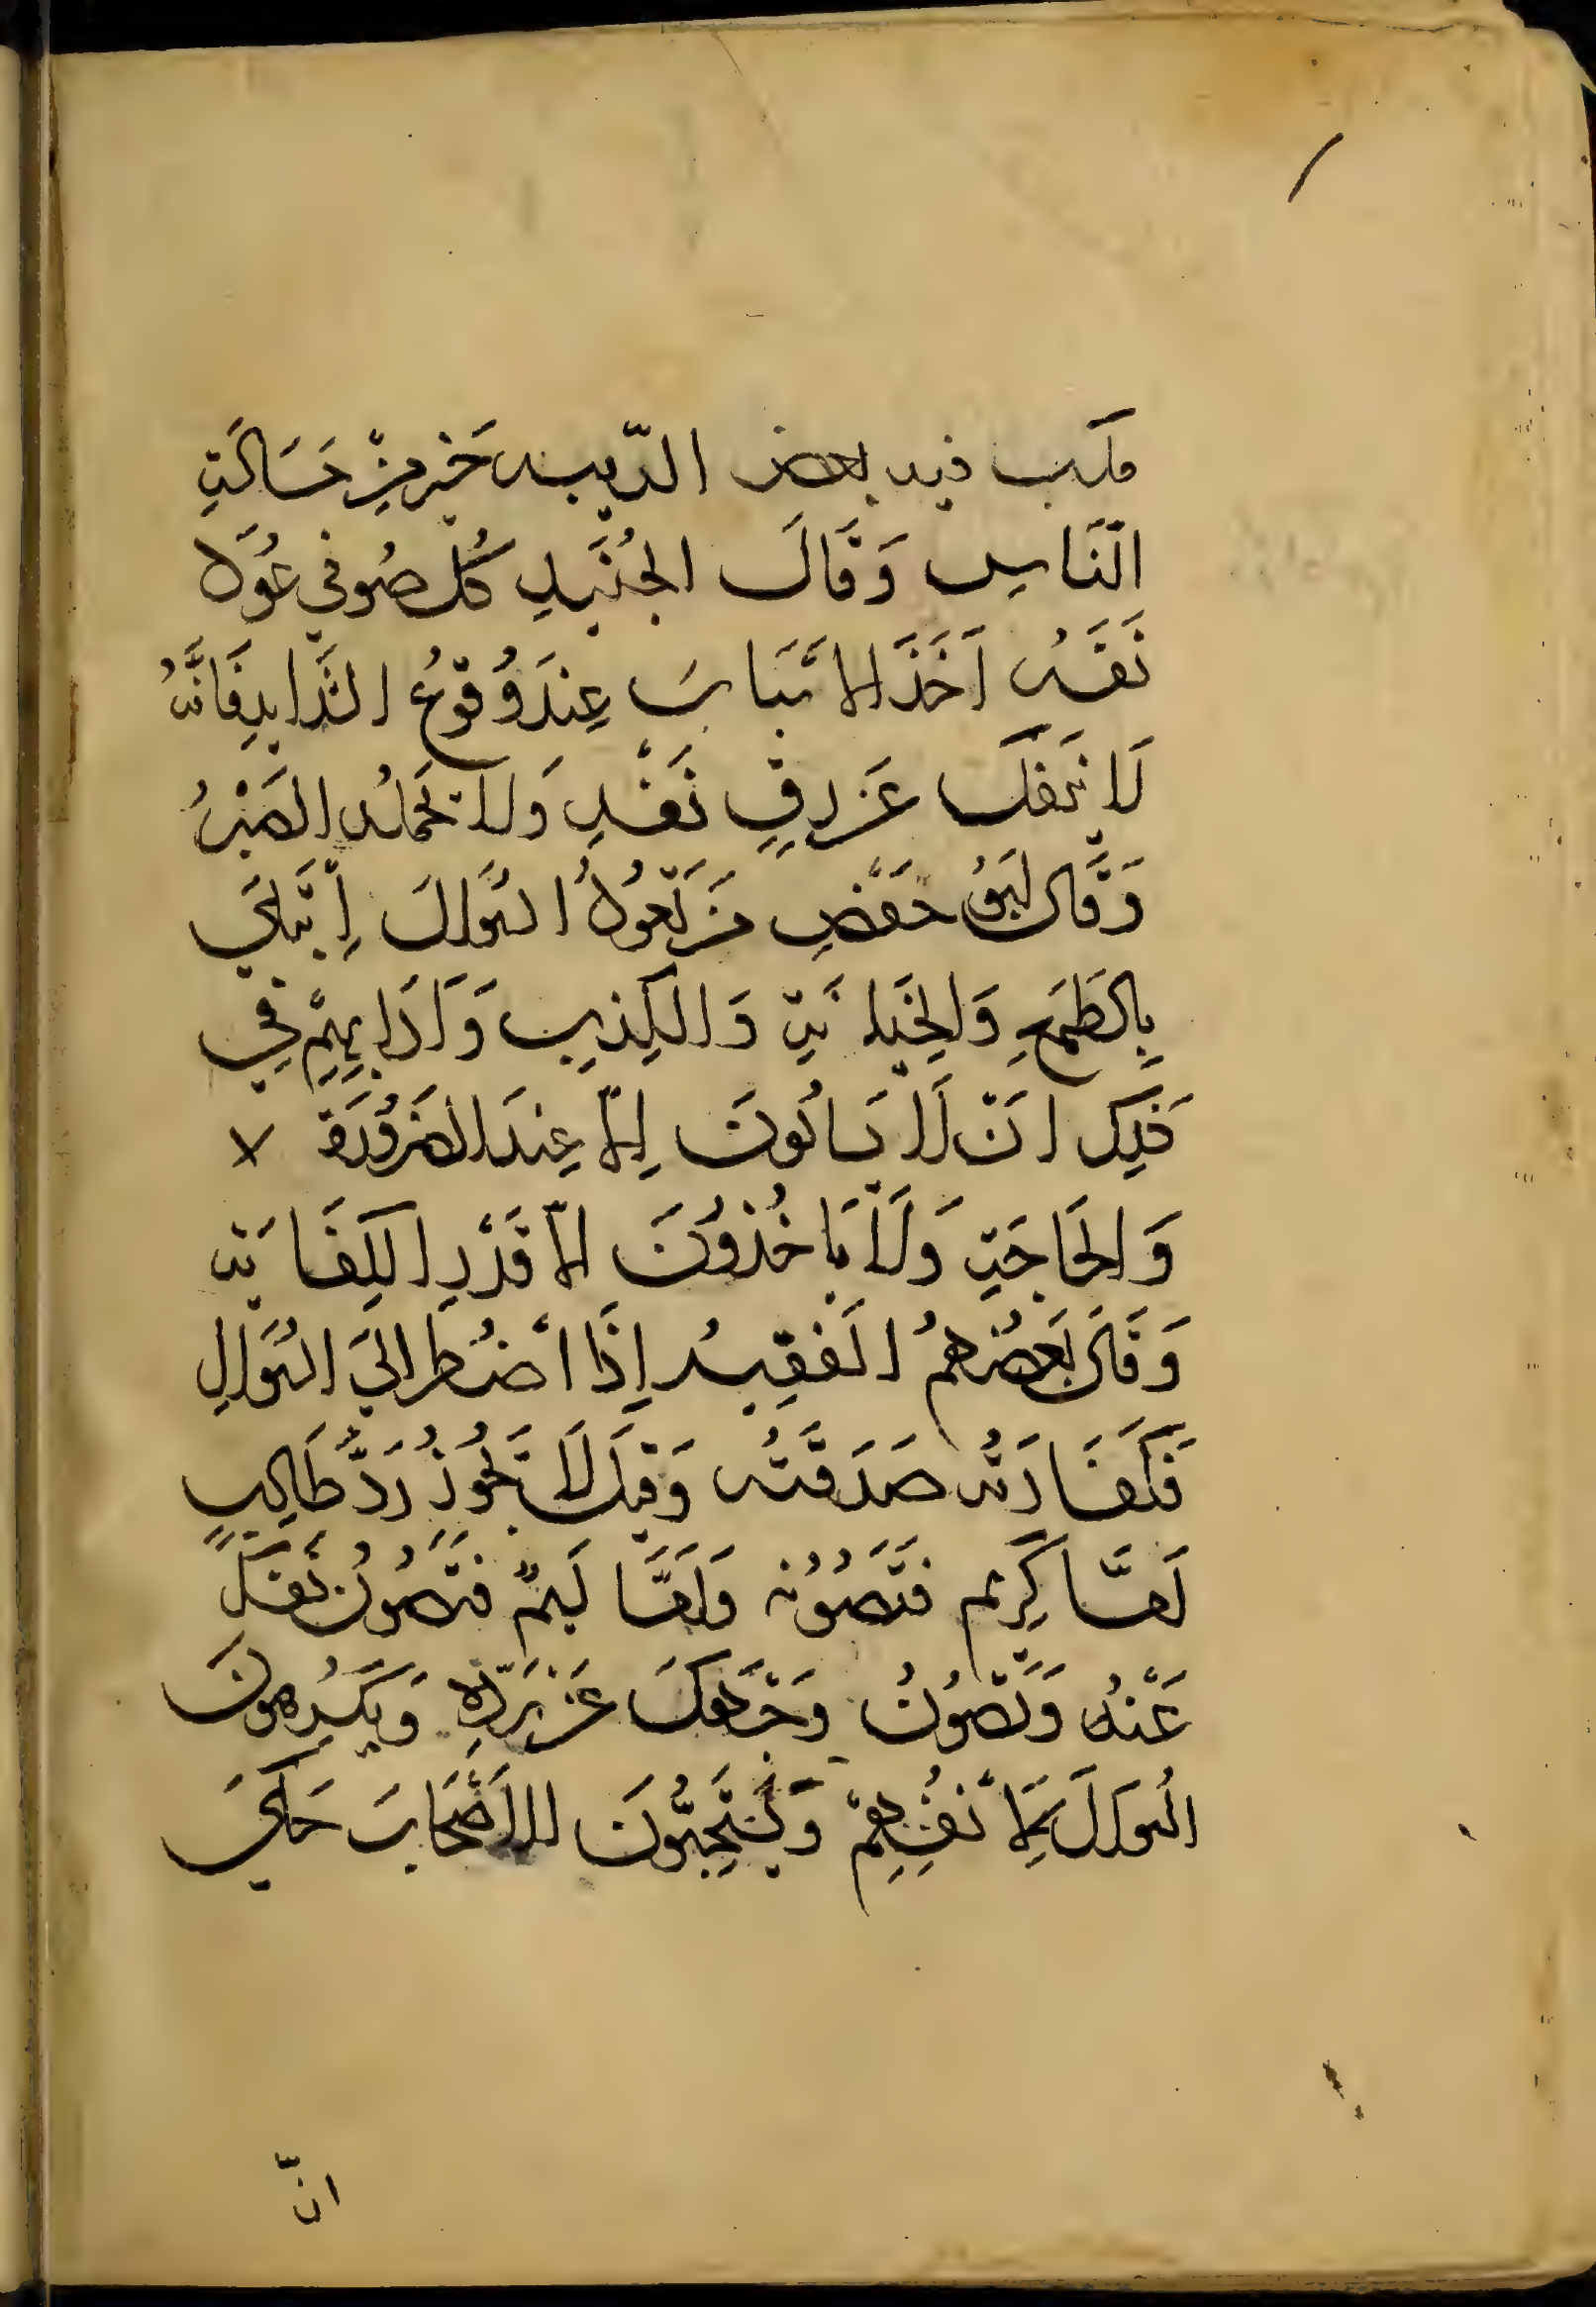 مكسب فيه بعض الريبه خير من مسالة
الناس وقال الجنيد كل صوفي عود
نفسه اخذ الاسباب عند وقوع الشدايد فانه
لا ينفك عن رق نفسه ولا تحمله الصبر
وقال ابو حفص من تعود السوال ابتلي
بالطمع والخيانة والكذب وادابهم في
ذلك ان لا يسالون الا عند الضرورة
والحاجة ولا ياخذون الا قدر الكفاية
وقال بعضهم الفقير اذا أضطر الى السوال
فكفارته صدقته وقيل لا يجوز رد طالب
اما كريم فتصونه واما ليم فتصون نفسك
عنه وتصون وجهك عن رده ويكرهون
السوال لانفسهم ويستحبون للاصحاب حكي
انّ